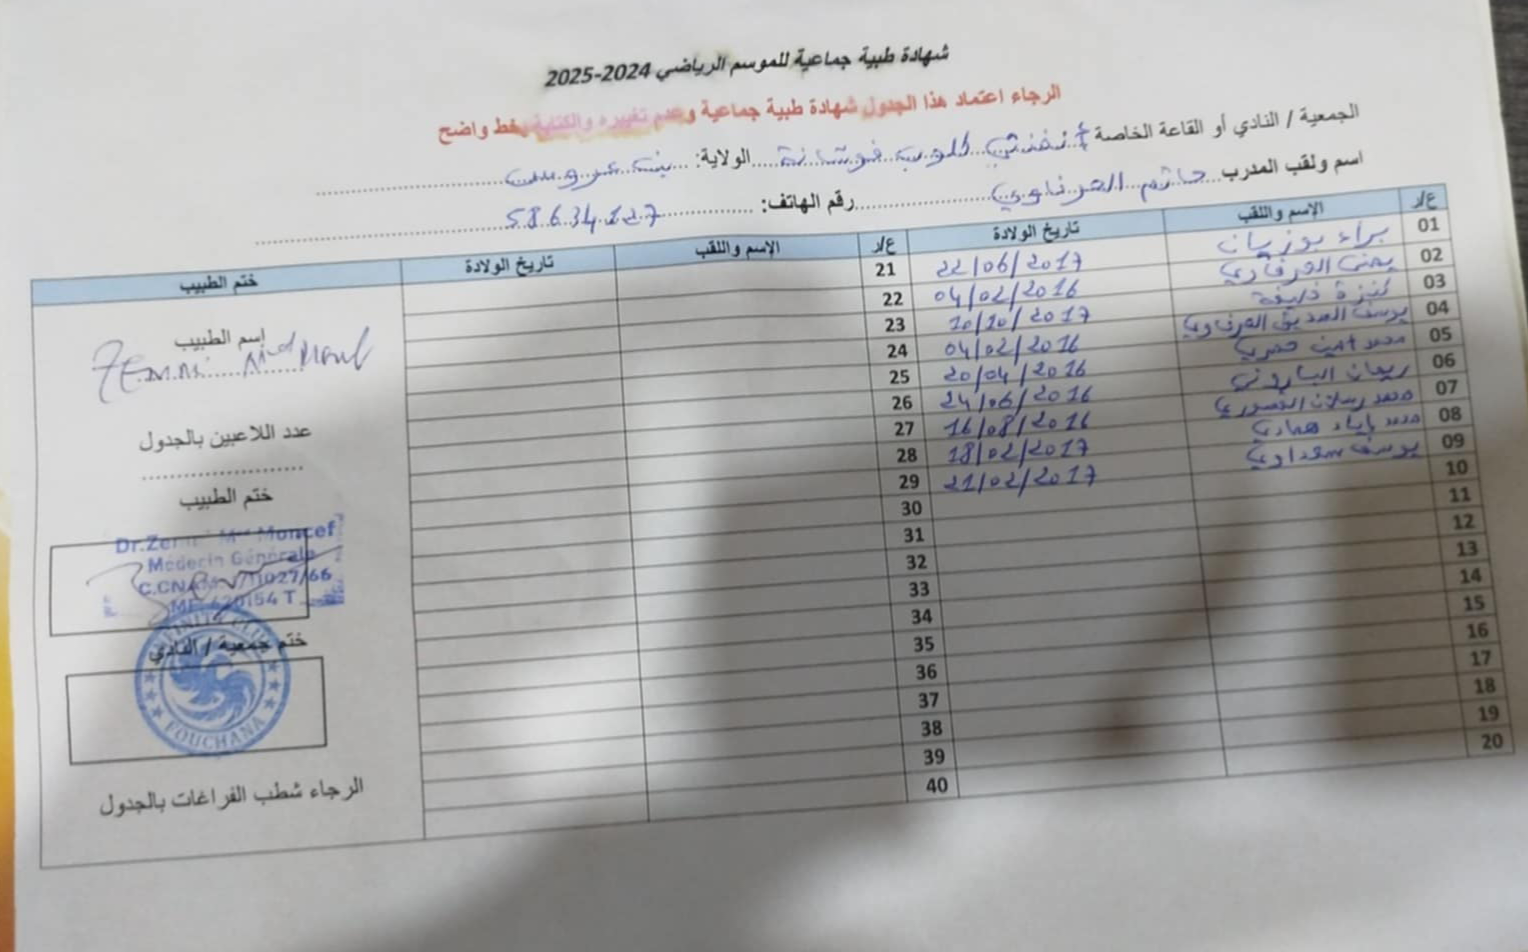 شهادة طبية جماعية للموسم الرياضي 2024-2025
الرجاء اعتماد هذا الجدول شهادة طبية جماعية وعدم تغييره والكتابة بخط واضح
الجمعية / النادي أو القاعة الخاصة أنفنتي كلوب فوشانة الولاية: بنعروس
اسم ولقب المدرب حاتم العرفاوي رقم الهاتف: 58634127
ع/ر الإسم واللقب تاريخ الولادة ع/ر الإسم واللقب تاريخ الولادة ختم الطبيب
01 براء بوزيان 22/06/2017 21
02 يحيى العرفاوي 04/02/2016 22
03 كنزة خليفة 10/10/2017 23
04 يوسف الصديق العرفاوي 04/02/2016 24
05 محمد أمين 20/04/2016 25
06 ريحان الباروني 24/06/2016 26
07 محمد رسلان المنصوري 16/08/2016 27
08 محمد إياد همادي 18/02/2017 28
09 يوسف سعداوي 21/02/2017 29
10 30
11 31
12 32
13 33
14 34
15 35
16 36
17 37
18 38
19 39
20 40
إسم الطبيب
Zemni Med
عدد اللاعبين بالجدول
ختم الطبيب
Dr.Zemni Med Moncef
Médecin Générale
ختم جمعية / النادي
INFINITY CLUB
FOUCHANA
الرجاء شطب الفراغات بالجدول